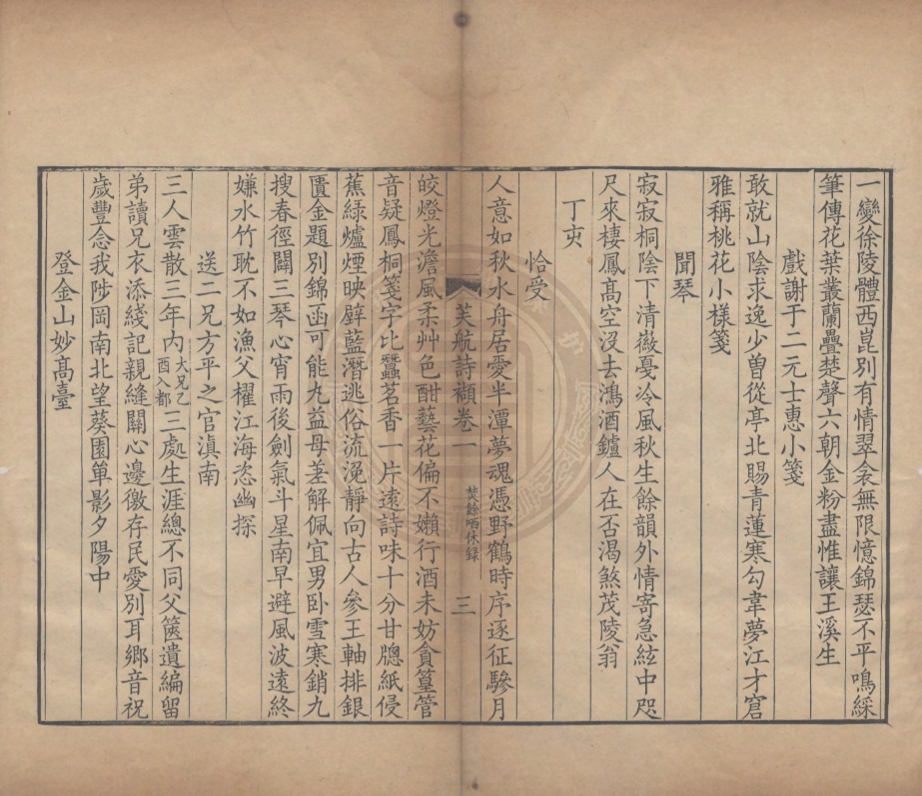 一變徐陵體西崑別有情翠衾無限憶錦瑟不平鳴綵
筆傳花葉叢蘭疊楚聲六朝金粉盡惟讓玉溪生
戲謝于二元士惠小箋
敢就山陰求逸少曽從亭北賜青蓮寒勾韋夢江才窘
雅稱桃花小樣箋
聞琴
寂寂桐陰下清徽戛冷風秋生餘韻外情寄急絃中咫
尺來棲鳳髙空沒去鴻酒鑪人在否渴煞茂陵翁
丁亥
恰受
人意如秋水舟居愛半潭夢魂憑野鶴時序逐征驂月
芙航詩襭卷一
焚餘哂休録
三
皎燈光澹風柔艸色酣藝花偏不嬾行酒未妨貪篁管
音疑鳳桐箋字比蠶茗香一片遠詩味十分甘牕紙侵
蕉綠爐煙映壁藍潛逃俗流浼靜向古人參玉軸排銀
匱金題別錦函可能丸益母差解佩宜男卧雪寒銷九
搜春徑闢三琴心宵雨後劍氣斗星南早避風波遠終
嫌水竹耽不如漁父櫂江海恣幽探
送二兄方平之官滇南
三人雲散三年內大兄乙酉入都三處生涯總不同父篋遺編留
弟讀兄衣添綫記親縫關心邊徼存民愛別耳鄉音祝
歲豐念我陟岡南北望葵園單影夕陽中
登金山妙髙臺